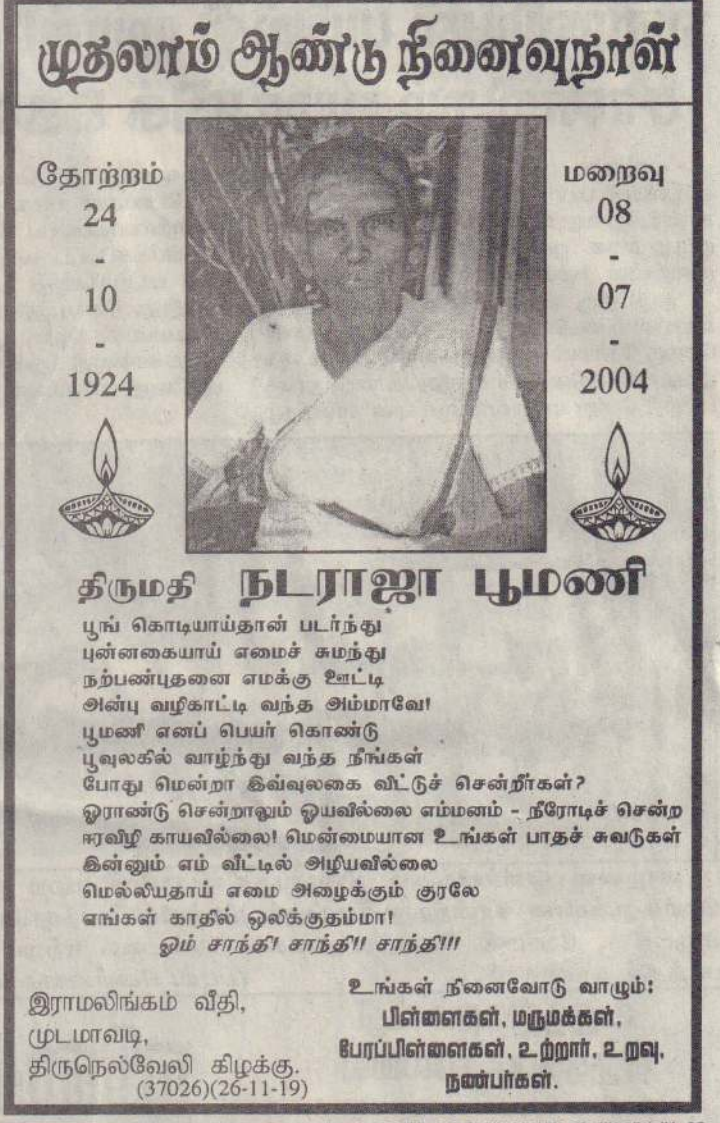 முதலாம் ஆண்டு நினைவுநாள்
தோற்றம்
24
-
10
-
1924
மறைவு
08
-
07
-
2004
திருமதி நடராஜா பூமணி
பூங் கொடியாய்தான் படர்ந்து
புன்னகையாய் எமைச் சுமந்து
நற்பண்புதனை எமக்கு ஊட்டி
அன்பு வழிகாட்டி வந்த அம்மாவே!
பூமணி எனப் பெயர் கொண்டு
பூவுலகில் வாழ்ந்து வந்த நீங்கள்
போது மென்றா இவ்வுலகை விட்டுச் சென்றீர்கள்?
ஓராண்டு சென்றாலும் ஓயவில்லை எம்மனம் - நீரோடிச் சென்ற
ஈரவிழி காயவில்லை! மென்மையான உங்கள் பாதச் சுவடுகள்
இன்னும் எம் வீட்டில் அழியவில்லை
மெல்லியதாய் எமை அழைக்கும் குரலே
எங்கள் காதில் ஒலிக்குதம்மா!
ஓம் சாந்தி! சாந்தி!! சாந்தி!!!
இராமலிங்கம் வீதி,
முடமாவடி,
திருநெல்வேலி கிழக்கு.
(37026)(26-11-19)
உங்கள் நினைவோடு வாழும்:
பிள்ளைகள், மருமக்கள்,
பேரப்பிள்ளைகள், உற்றார், உறவு,
நண்பர்கள்.